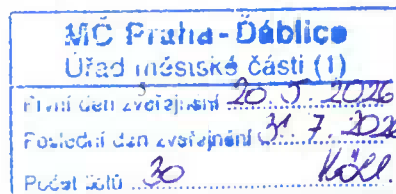 MČ Praha - Ďáblice
Úřad městské části (1)
První den zveřejnění 20. 5. 2026
Poslední den zveřejnění 31. 7. 2026
Počet listů 30